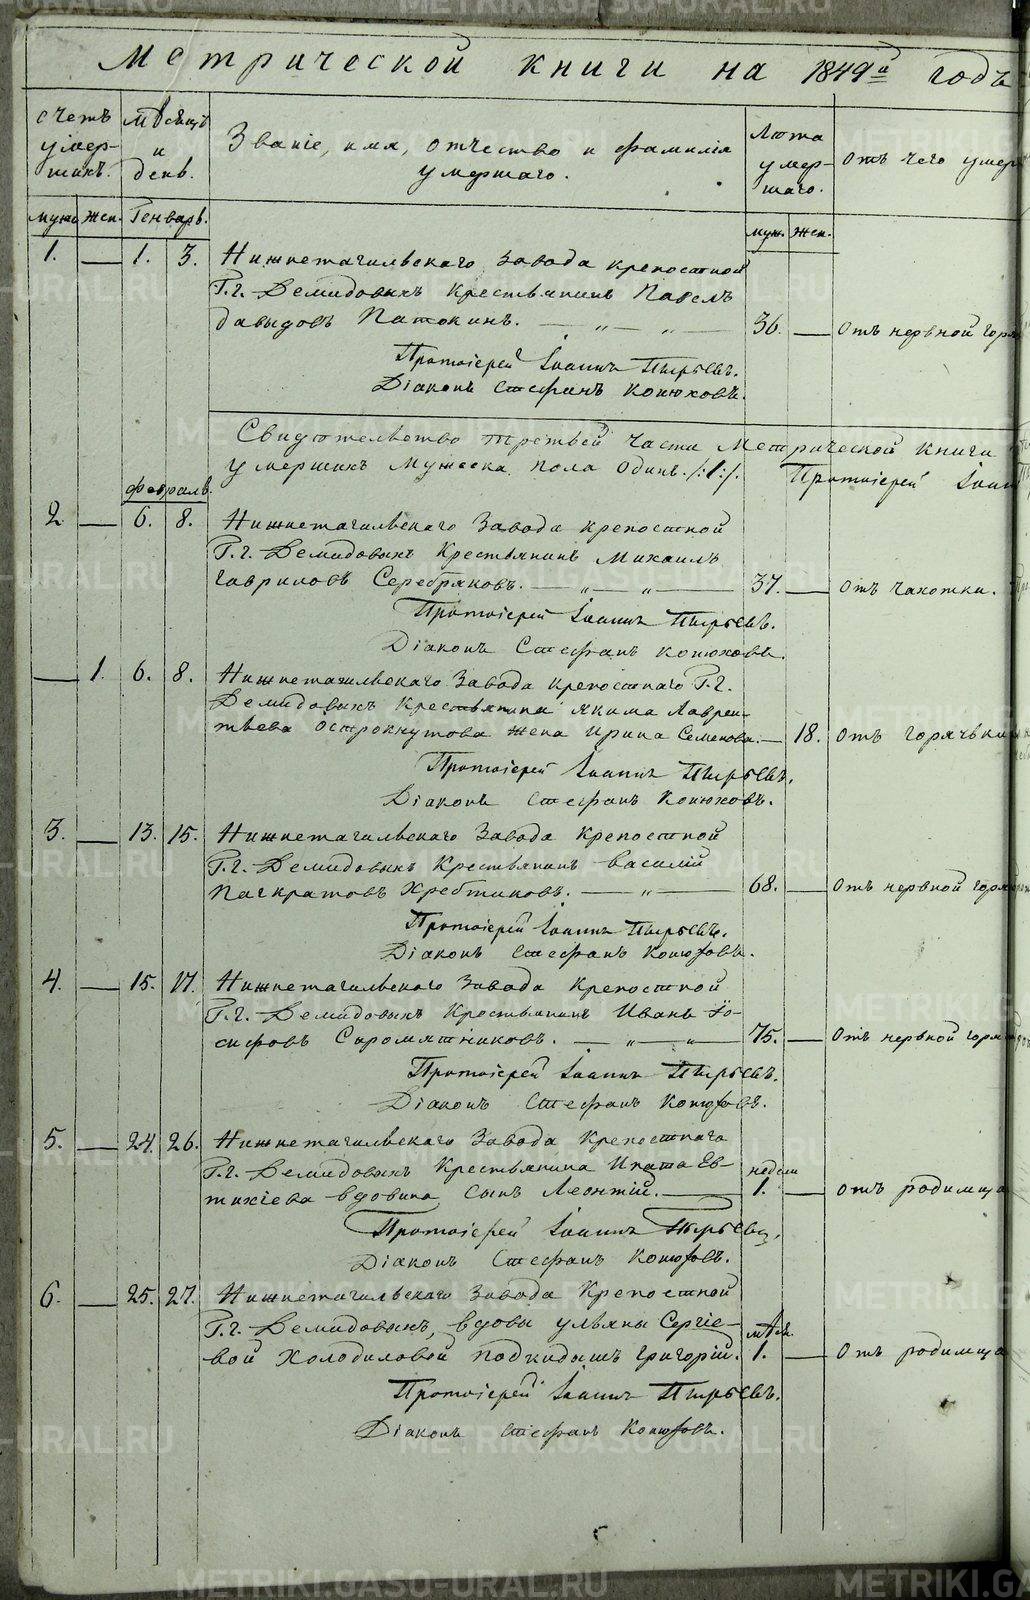 Метрической книги на 1849й годъ
Счетъ умер-шихъ.
Мѣсяцъ и день.
Званіе, имя, отчество и фамилія
умершаго.
Лѣта умер-шаго.
Отъ чего умер
муж. жен. Генварь.
муж. жен.
1. — 1. 3. Нижнетагильскаго Завода крепостной
Г.г. Демидовыхъ Крестьянинъ Павелъ
Давыдовъ Патокинъ. — „ — „ — 36. — Отъ нервной горя
Протоіерей Іоаннъ Пырьевъ.
Діаконъ Стефанъ Конюховъ.
Свидѣтельство третьей части Метрической Книги
умершихъ Мужеска пола одинъ. /:1:/. Протоіерей Іоан
Февраль.
2. — 6. 8. Нижнетагильскаго Завода крепостной
Г.г. Демидовыхъ Крестьянинъ Михаилъ
Гавриловъ Серебряковъ. — „ — „ — 37. — Отъ чахотки.
Протоіерей Іоаннъ Пырьевъ.
Діаконъ Стефанъ Конюховъ.
— 1. 6. 8. Нижнетагильскаго Завода крепостнаго Г.г.
Демидовыхъ Крестьянина Якима Лаврен-
тьева Острокнутова жена Ирина Семенова. — 18. Отъ горячьки
Протоіерей Іоаннъ Пырьевъ.
Діаконъ Стефанъ Конюховъ.
3. — 13. 15. Нижнетагильскаго Завода Крепостной
Г.г. Демидовыхъ Крестьянинъ Василій
Панкратовъ Хребтиковъ. — „ — 68. — Отъ нервной горя
Протоіерей Іоаннъ Пырьевъ.
Діаконъ Стефанъ Конюховъ.
4. — 15. 17. Нижнетагильскаго Завода Крепостной
Г.г. Демидовыхъ Крестьянинъ Иванъ Іо-
сифовъ Сыромятниковъ. — „ — „ — 75. — Отъ нервной горя
Протоіерей Іоаннъ Пырьевъ.
Діаконъ Стефанъ Конюховъ.
5. — 24. 26. Нижнетагильскаго Завода Крепостнаго
Г.г. Демидовыхъ Крестьянина Ипата Ев-
тихіева Вдовина сынъ Леонтій. — недели 1. — Отъ родимца
Протоіерей Іоаннъ Пырьевъ.
Діаконъ Стефанъ Конюховъ.
6. — 25. 27. Нижнетагильскаго Завода Крепостной
Г.г. Демидовыхъ, вдовы Ульяны Сергіе-
вой Холодиловой подкидышъ Григорій. мѣся. 1. — Отъ родимца
Протоіерей Іоаннъ Пырьевъ.
Діаконъ Стефанъ Конюховъ.
METRIKI.GASO-URAL.RU